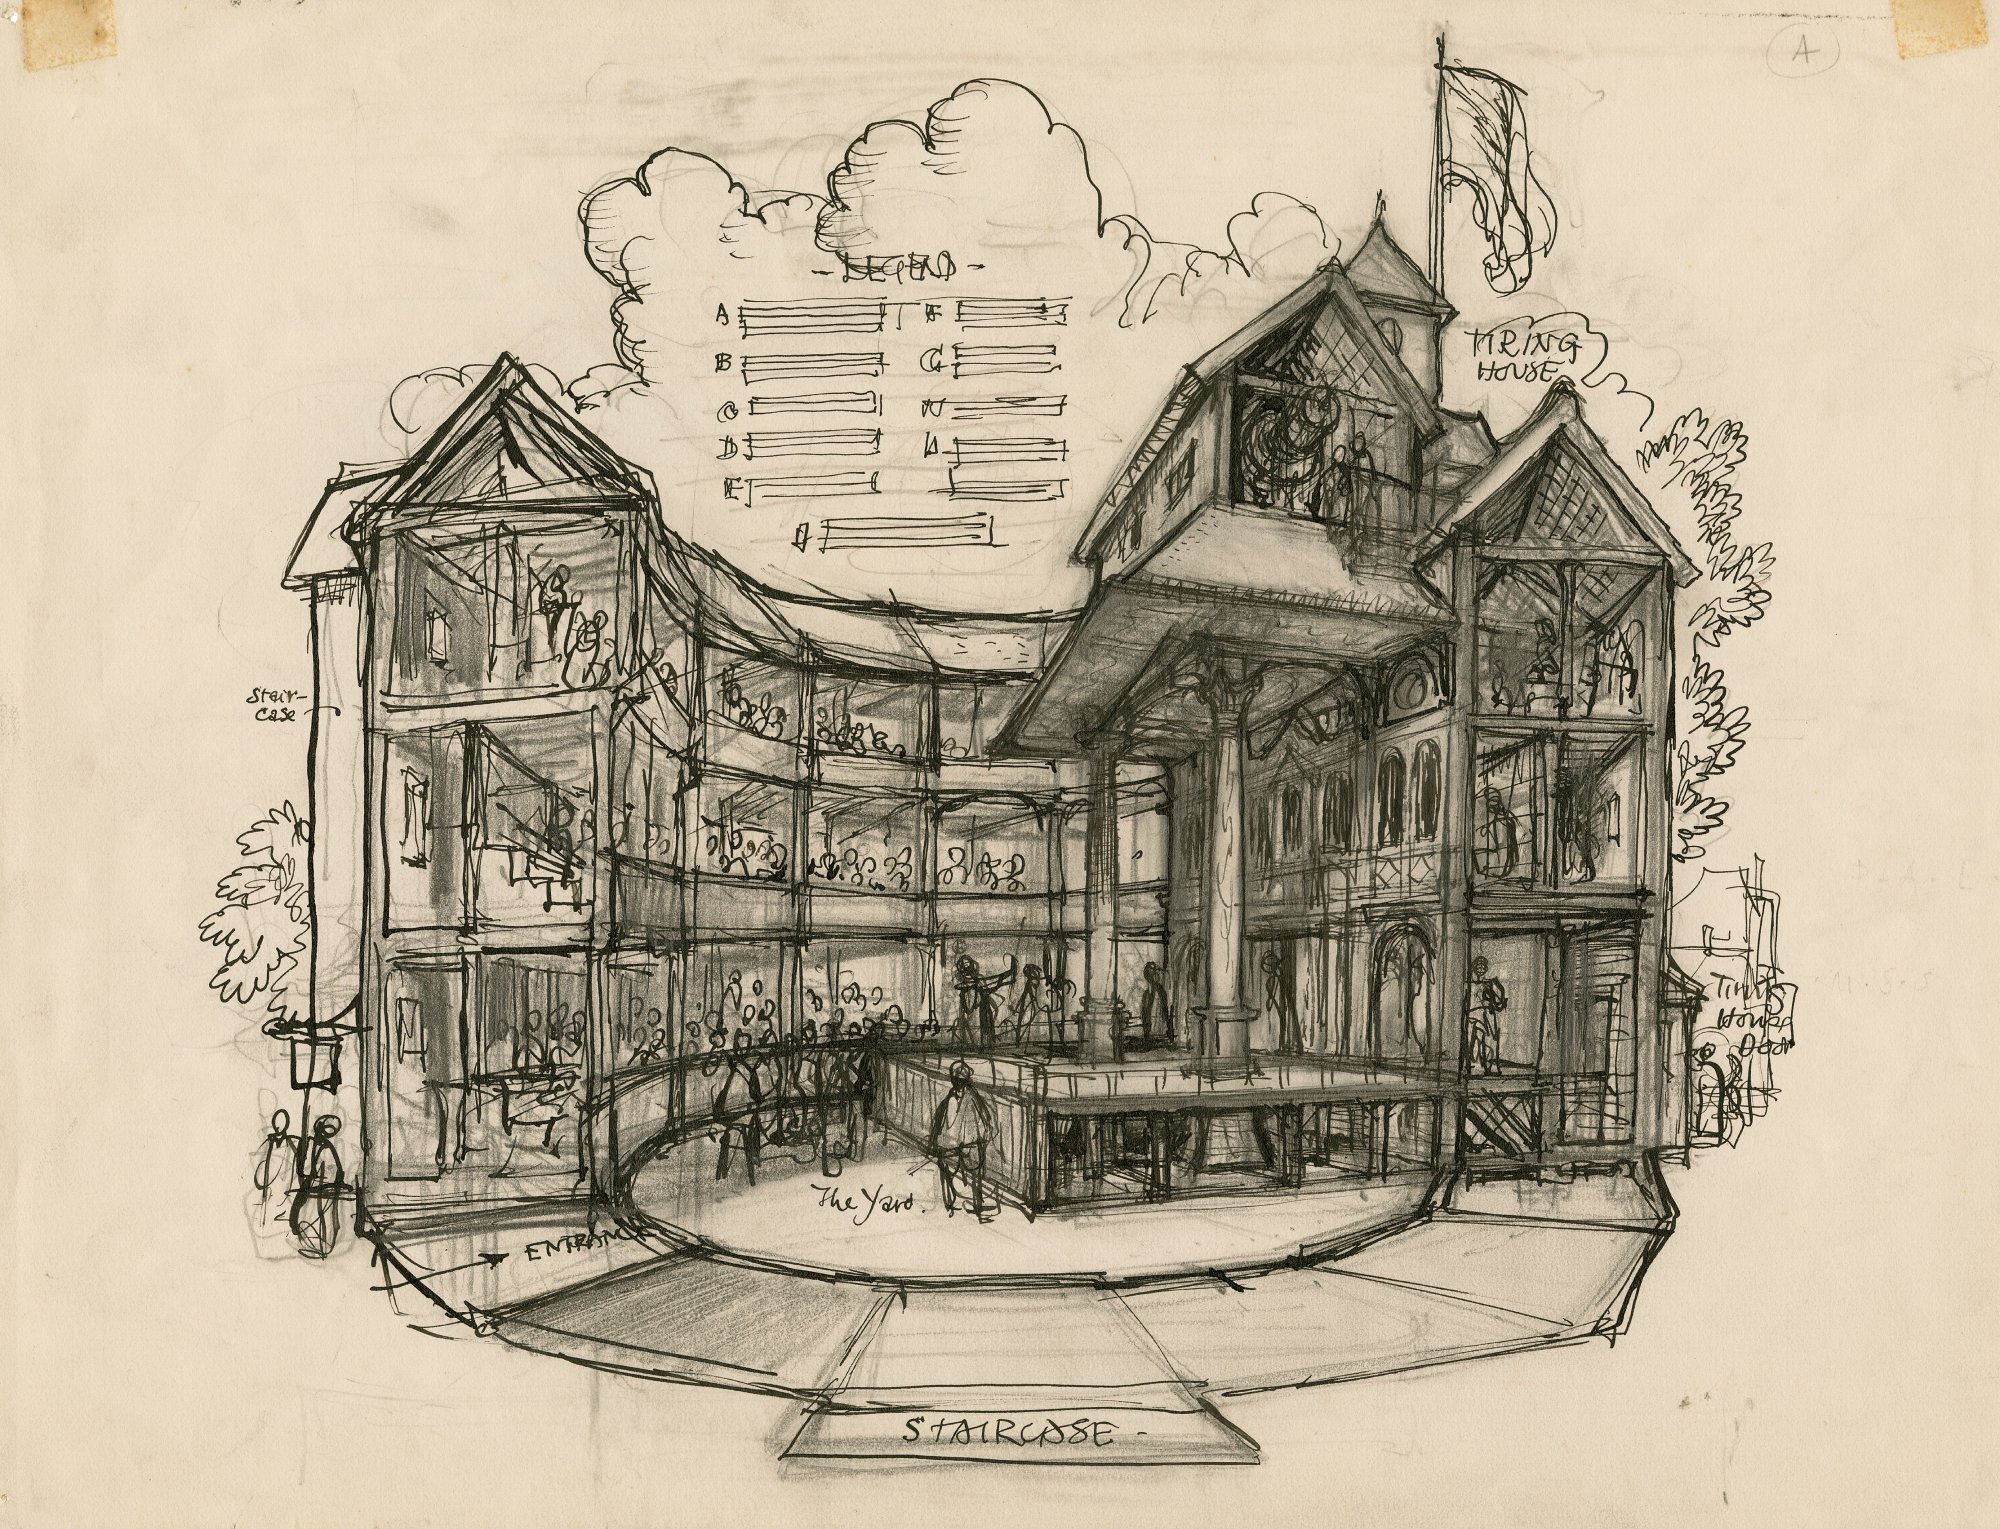 A
- LEGEND -
A
F
B
G
C
H
D
E
TIRING
HOUSE
Stair-
case
Tiring
House
Door
The Yard.
ENTRANCE
STAIRCASE -